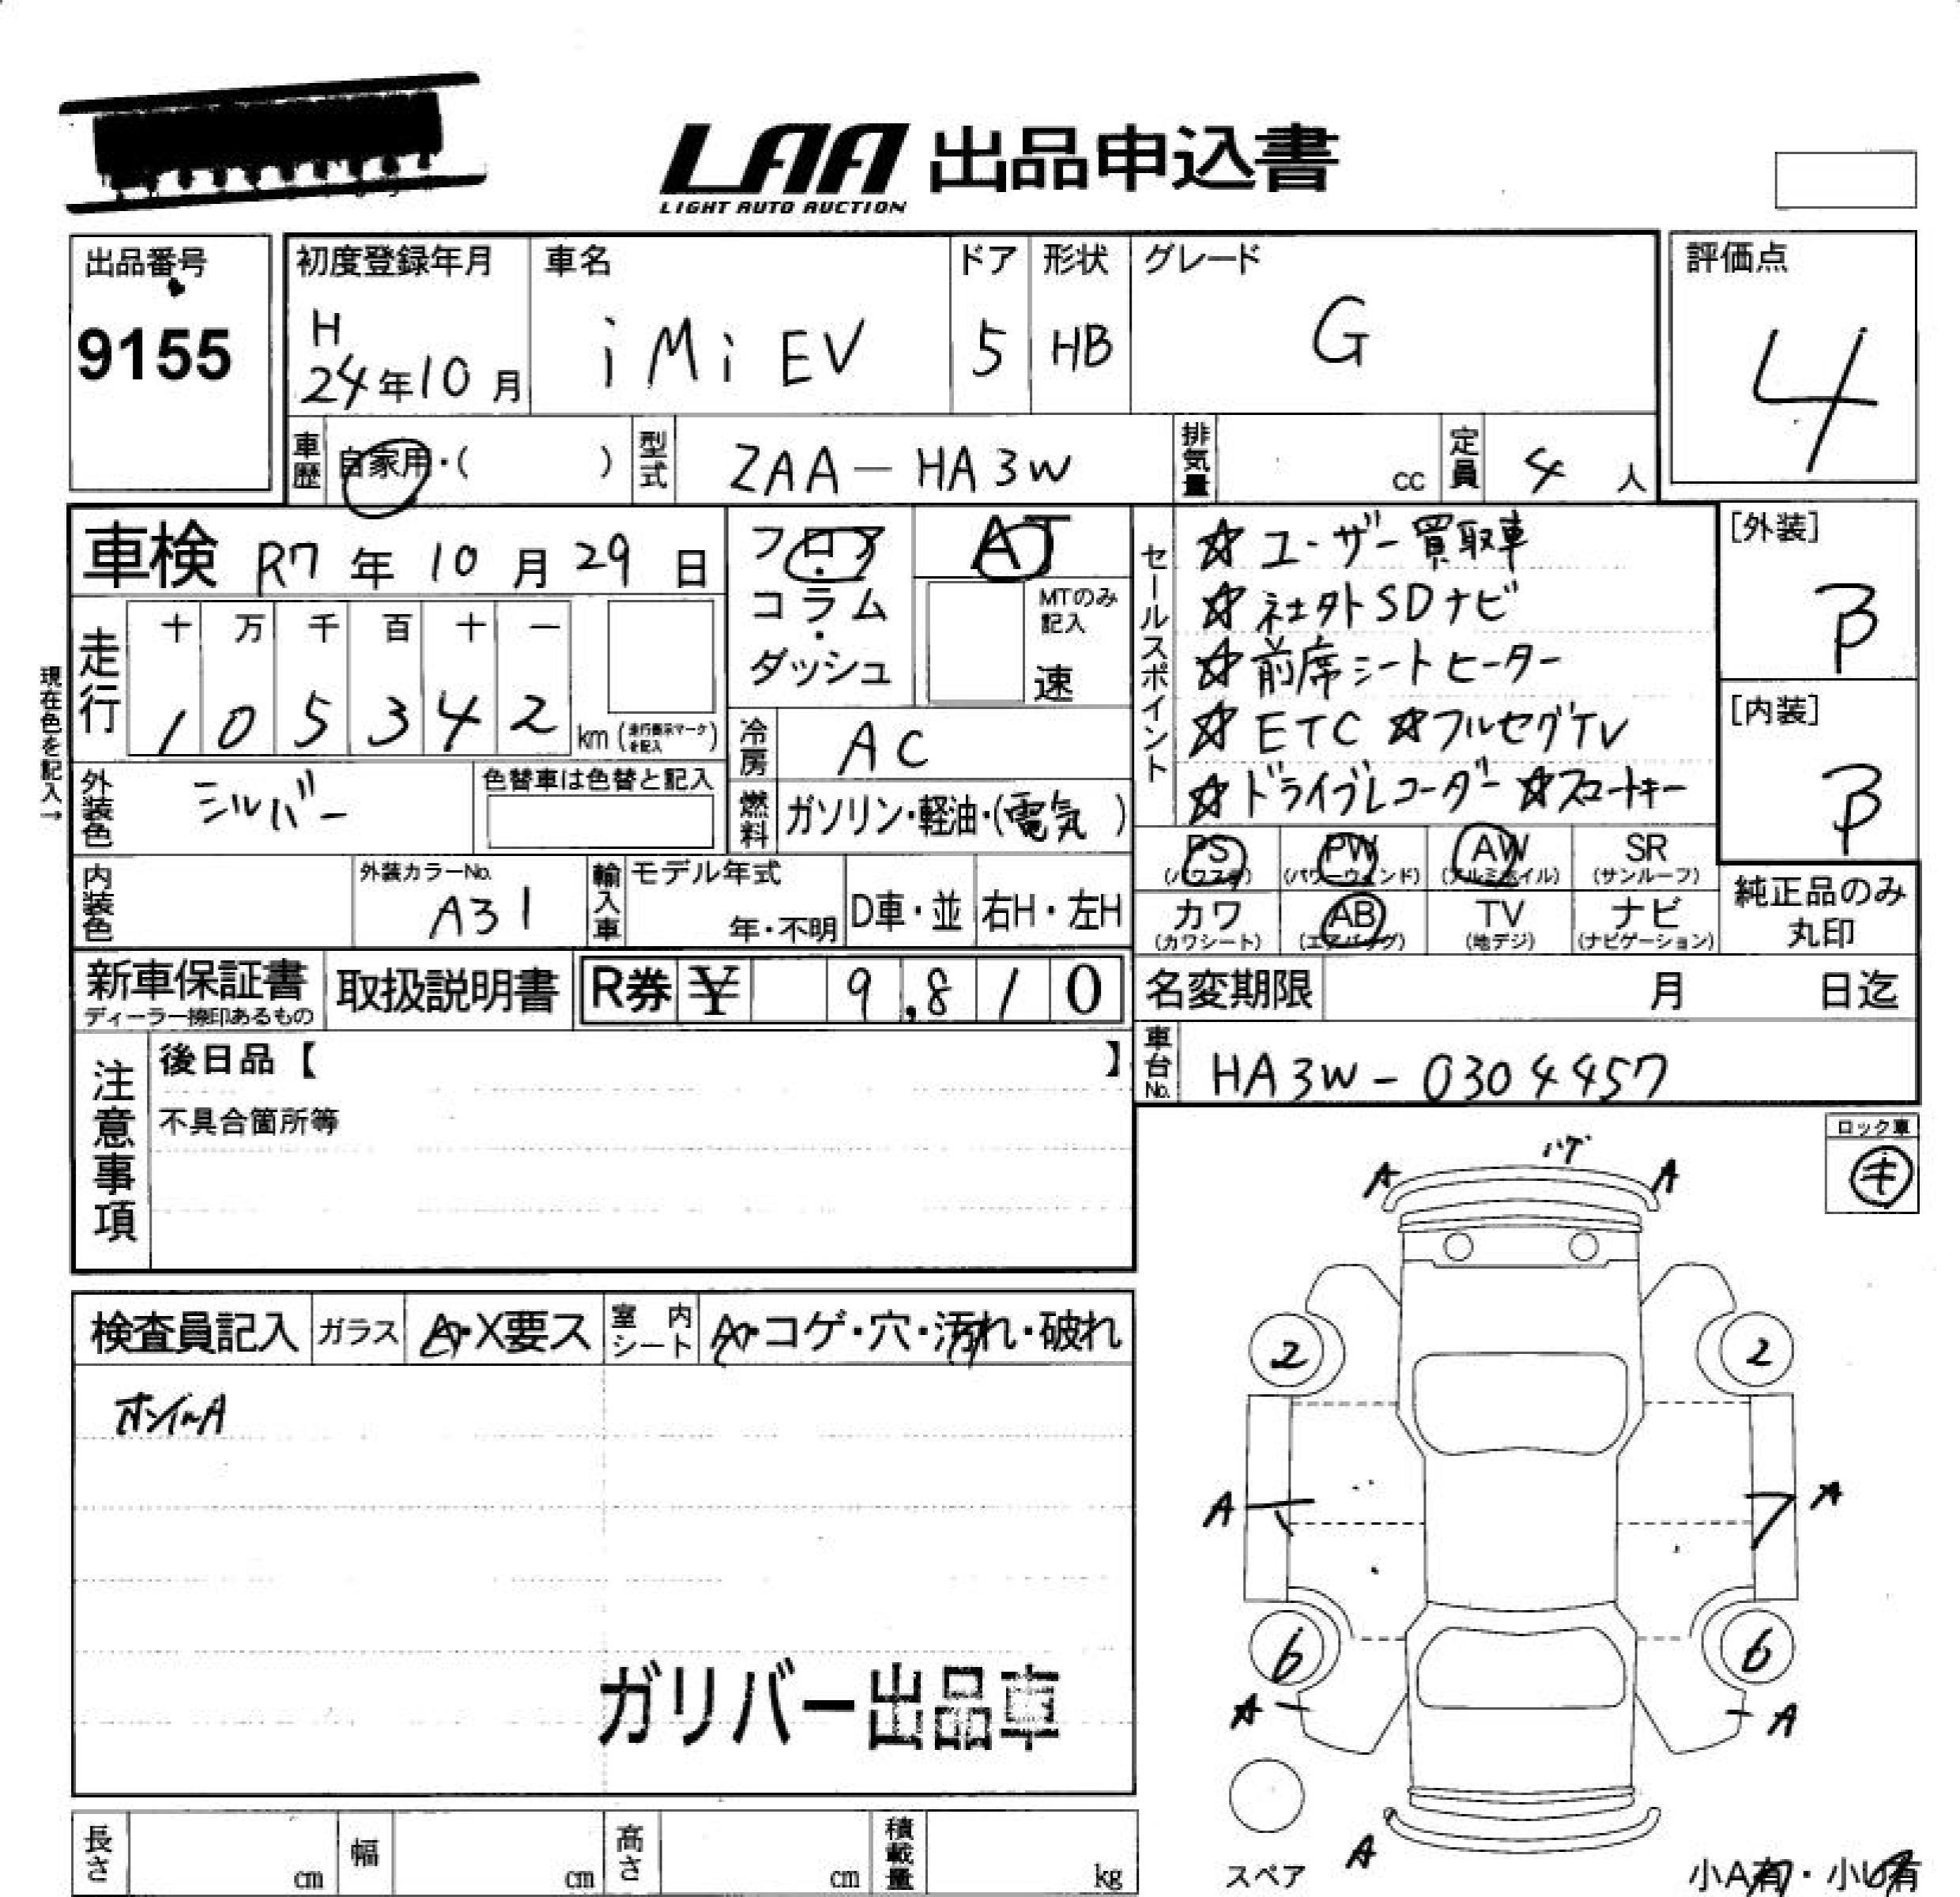 LAA 出品申込書
LIGHT AUTO AUCTION
出品番号
9155
初度登録年月
H
24年10月
車名
i Mi EV
ドア
5
形状
HB
グレード
G
評価点
4
車歴
自家用・( )
型式
ZAA-HA3W
排気量
cc
定員
4人
車検 R7年10月29日
フロア・コラム・ダッシュ
AT
MTのみ
記入
速
セールスポイント
☆ユーザー買取車
☆社外SDナビ
☆前席シートヒーター
☆ETC ☆フルセグTV
☆ドライブレコーダー ☆スマートキー
[外装]
B
[内装]
B
現在色を記入→
走行
十 万 千 百 十 一
1 0 5 3 4 2 km
冷房
AC
燃料
ガソリン・軽油・(電気)
外装色
シルバー
色替車は色替と記入
内装色
外装カラーNo.
A31
輸入車
モデル年式
年・不明
D車・並
右H・左H
PS
PW
AW
(アルミホイル)
SR
(サンルーフ)
カワ
(カワシート)
AB
(エアバッグ)
TV
(地デジ)
ナビ
(ナビゲーション)
純正品のみ
丸印
新車保証書
ディーラー捺印あるもの
取扱説明書
R券 ¥ 9,810
名変期限
月 日迄
車台No.
HA3W-0304457
注意事項
後日品【 】
不具合箇所等
ロック車
キ
検査員記入
ガラス
A・X要ス
室内シート
A・コゲ・穴・汚れ・破れ
ホイルA
ガリバー出品車
ハゲ
A A
2 2
A A
6 6
A A
A
スペア
小A有・小U有
長さ
cm
幅
cm
高さ
cm
積載量
kg